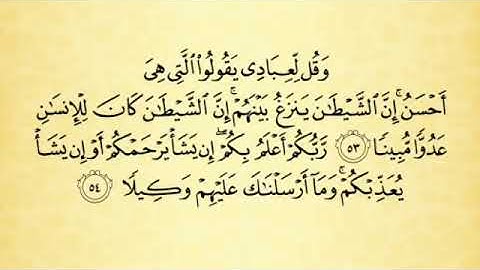 وَقُل لِّعِبَادِى يَقُولُوا۟ ٱلَّتِى هِىَ
أَحْسَنُ ۚ إِنَّ ٱلشَّيْطَـٰنَ يَنزَغُ بَيْنَهُمْ ۚ إِنَّ ٱلشَّيْطَـٰنَ كَانَ لِلْإِنسَـٰنِ
عَدُوًّا مُّبِينًا ۝٥٣ رَّبُّكُمْ أَعْلَمُ بِكُمْ ۖ إِن يَشَأْ يَرْحَمْكُمْ أَوْ إِن يَشَأْ
يُعَذِّبْكُمْ ۚ وَمَآ أَرْسَلْنَـٰكَ عَلَيْهِمْ وَكِيلًا ۝٥٤